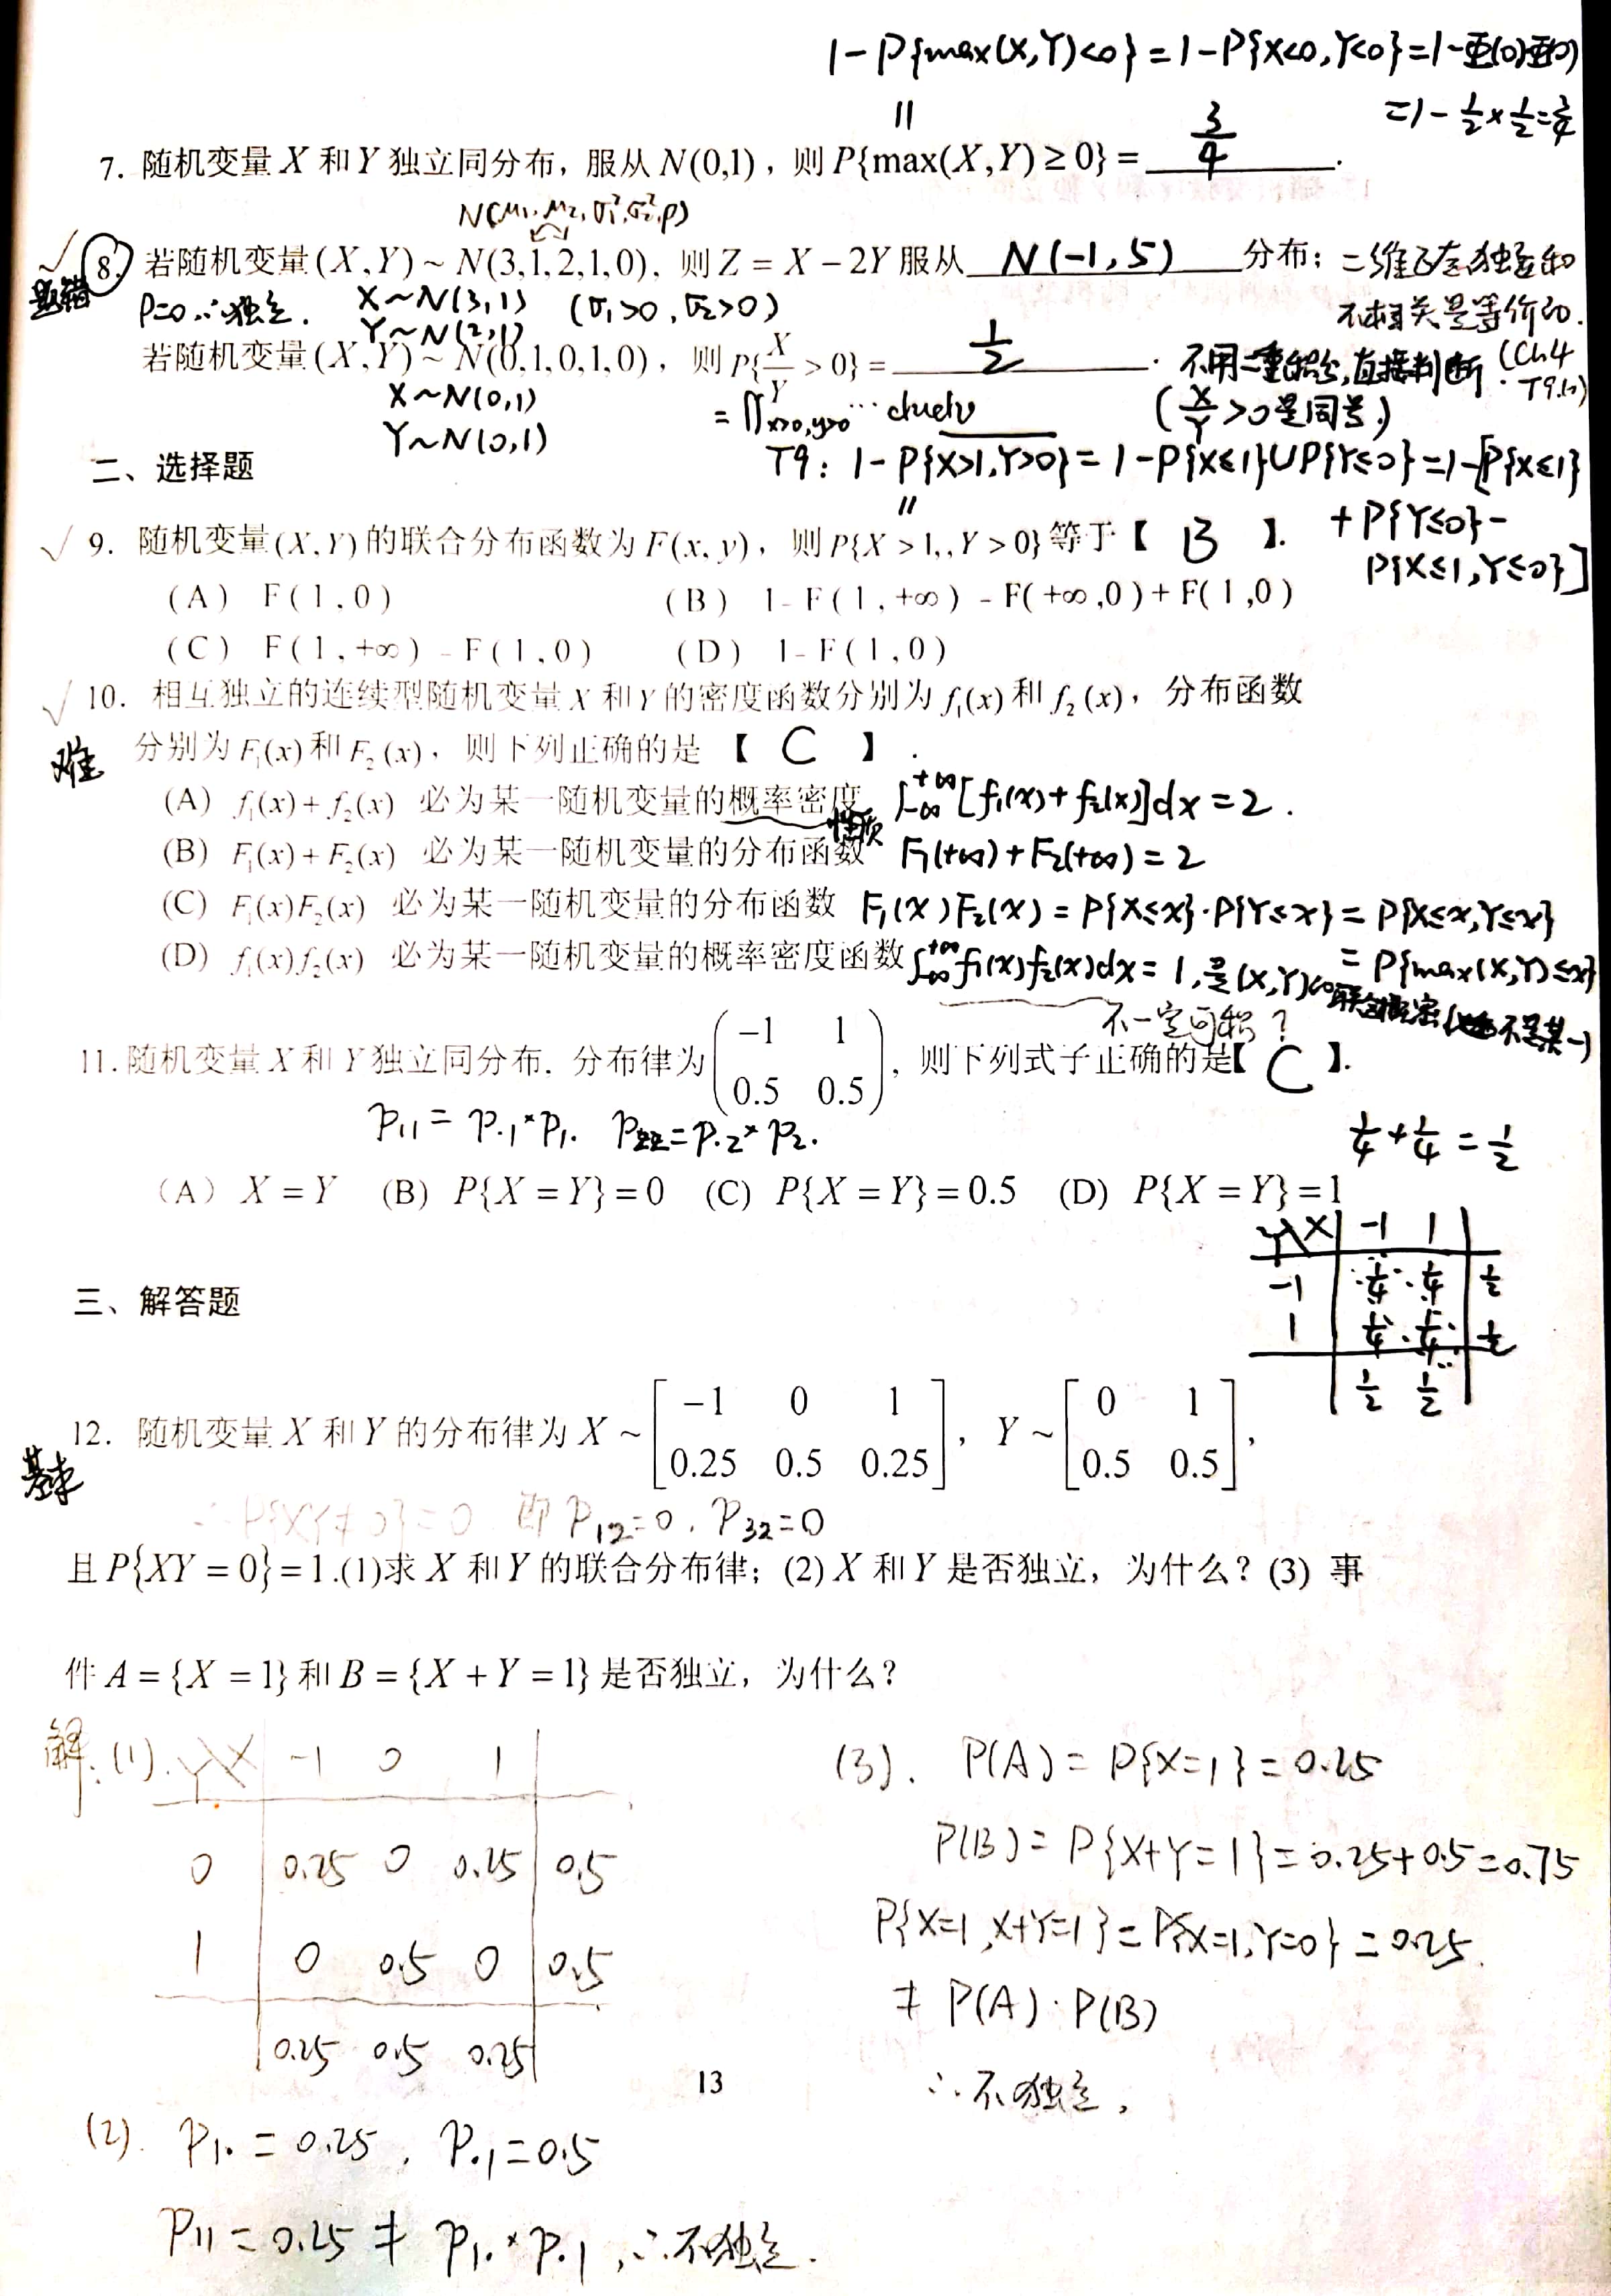 1-P{max(X,Y)<0}=1-P{X<0,Y<0}=1-Φ(0)Φ(0)
=1-1/2×1/2=3/4
||
7. 随机变量 X 和 Y 独立同分布，服从 N(0,1)，则 P{max(X,Y)≥0}= 3/4 .
N(μ₁,μ₂,σ₁²,σ₂²,ρ)
√ 8. 若随机变量(X,Y)~N(3,1,2,1,0)，则 Z=X-2Y 服从 N(-1,5) 分布；二维正态独立和
题错 ρ=0∴独立. X~N(3,1) (σ₁>0,σ₂>0) 不相关是等价的.
Y~N(2,1)
若随机变量(X,Y)~N(0,1,0,1,0)，则 P{X/Y>0}= 1/2 . 不用二重积分,直接判断. (Ch4 T9.(1))
X~N(0,1) =∬x>0,y>0 … dudv (X/Y>0是同号.)
Y~N(0,1)
T9: 1-P{X>1,Y>0}=1-P{X≤1}∪P{Y≤0}=1-[P{X≤1}
+P{Y≤0}-
P{X≤1,Y≤0}]
二、选择题
||
√ 9. 随机变量(X,Y)的联合分布函数为F(x,y)，则P{X>1,,Y>0}等于【 B 】.
(A) F(1,0) (B) 1-F(1,+∞)-F(+∞,0)+F(1,0)
(C) F(1,+∞)-F(1,0) (D) 1-F(1,0)
√ 10. 相互独立的连续型随机变量X和Y的密度函数分别为f₁(x)和f₂(x)，分布函数
难 分别为F₁(x)和F₂(x)，则下列正确的是【 C 】.
(A) f₁(x)+f₂(x) 必为某一随机变量的概率密度 ∫-∞+∞[f₁(x)+f₂(x)]dx=2.
性质
(B) F₁(x)+F₂(x) 必为某一随机变量的分布函数 F₁(+∞)+F₂(+∞)=2
(C) F₁(x)F₂(x) 必为某一随机变量的分布函数 F₁(x)F₂(x)=P{X≤x}·P{Y≤x}=P{X≤x,Y≤x}
=P{max(X,Y)≤x}
(D) f₁(x)f₂(x) 必为某一随机变量的概率密度函数 ∫-∞+∞f₁(x)f₂(x)dx=1,是(X,Y)的联合概密(不是某一)
不一定可积?
11. 随机变量X和Y独立同分布. 分布律为(-1 1
0.5 0.5)，则下列式子正确的是【 C 】.
P₁₁=P.₁×P₁. P₂₂=P.₂×P₂.
1/4+1/4=1/2
(A) X=Y (B) P{X=Y}=0 (C) P{X=Y}=0.5 (D) P{X=Y}=1
Y\X -1 1
-1 1/4 1/4 1/2
1 1/4 1/4 1/2
1/2 1/2
三、解答题
12. 随机变量X和Y的分布律为X~[-1 0 1
0.25 0.5 0.25]，Y~[0 1
0.5 0.5]，
基本
∴P{XY≠0}=0 即P₁₂=0,P₃₂=0
且P{XY=0}=1.(1)求X和Y的联合分布律；(2)X和Y是否独立，为什么？(3) 事
件A={X=1}和B={X+Y=1}是否独立，为什么？
解:(1). Y\X -1 0 1
0 0.25 0 0.25 0.5
1 0 0.5 0 0.5
0.25 0.5 0.25
(3). P(A)=P{X=1}=0.25
P(B)=P{X+Y=1}=0.25+0.5=0.75
P{X=1,X+Y=1}=P{X=1,Y=0}=0.25.
≠P(A)·P(B)
∴不独立.
13
(2). P₁.=0.25, P.₁=0.5
P₁₁=0.25≠P₁.×P.₁,∴不独立.